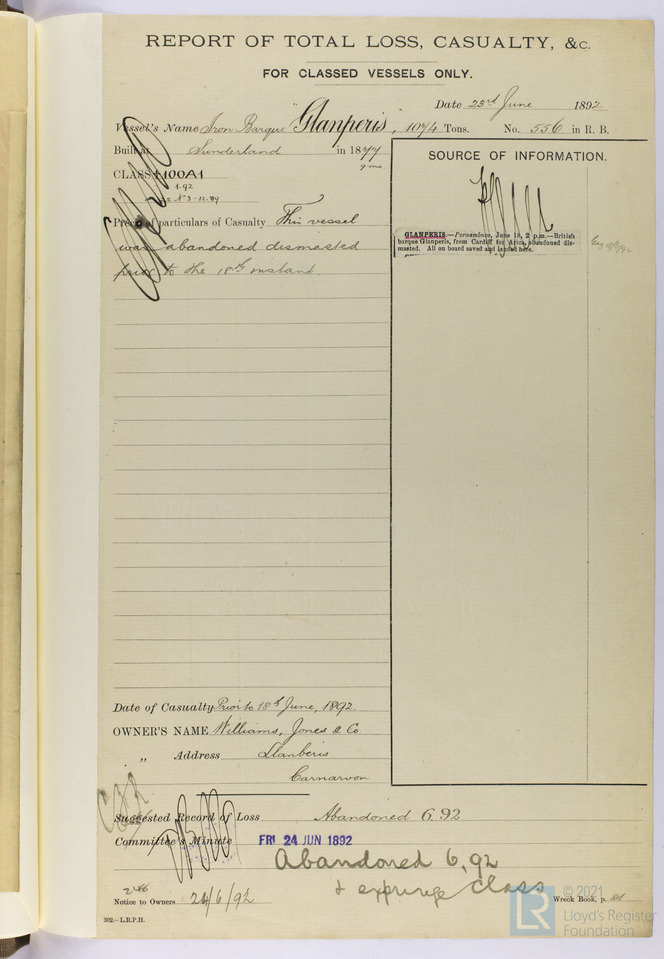 REPORT OF TOTAL LOSS, CASUALTY, &c.
FOR CLASSED VESSELS ONLY.
Date 23rd June 1892
Vessel's Name Iron Barque "Glanperis", 1074 Tons. No. 556 in R. B.
Built at Sunderland in 1877
CLASS +100A1
1.92
SOURCE OF INFORMATION.
Precis of particulars of Casualty This vessel
was abandoned dismasted
prior to the 18th instant
GLANPERIS.—Pernambuco, June 18, 2 p.m.—British
barque Glanperis, from Cardiff for Arica, abandoned dis-
masted. All on board saved and landed here.
Date of Casualty Prior to 18th June, 1892.
OWNER'S NAME Williams, Jones & Co
„ Address Llanberis
Carnarvon
Suggested Record of Loss Abandoned 6.92
Committee's Minute FRI 24 JUN 1892
Abandoned 6.92
& expunge class
Notice to Owners 24/6/92
Wreck Book, p.
302.—L.R.P.H.
LR
© 2021
Lloyd's Register
Foundation